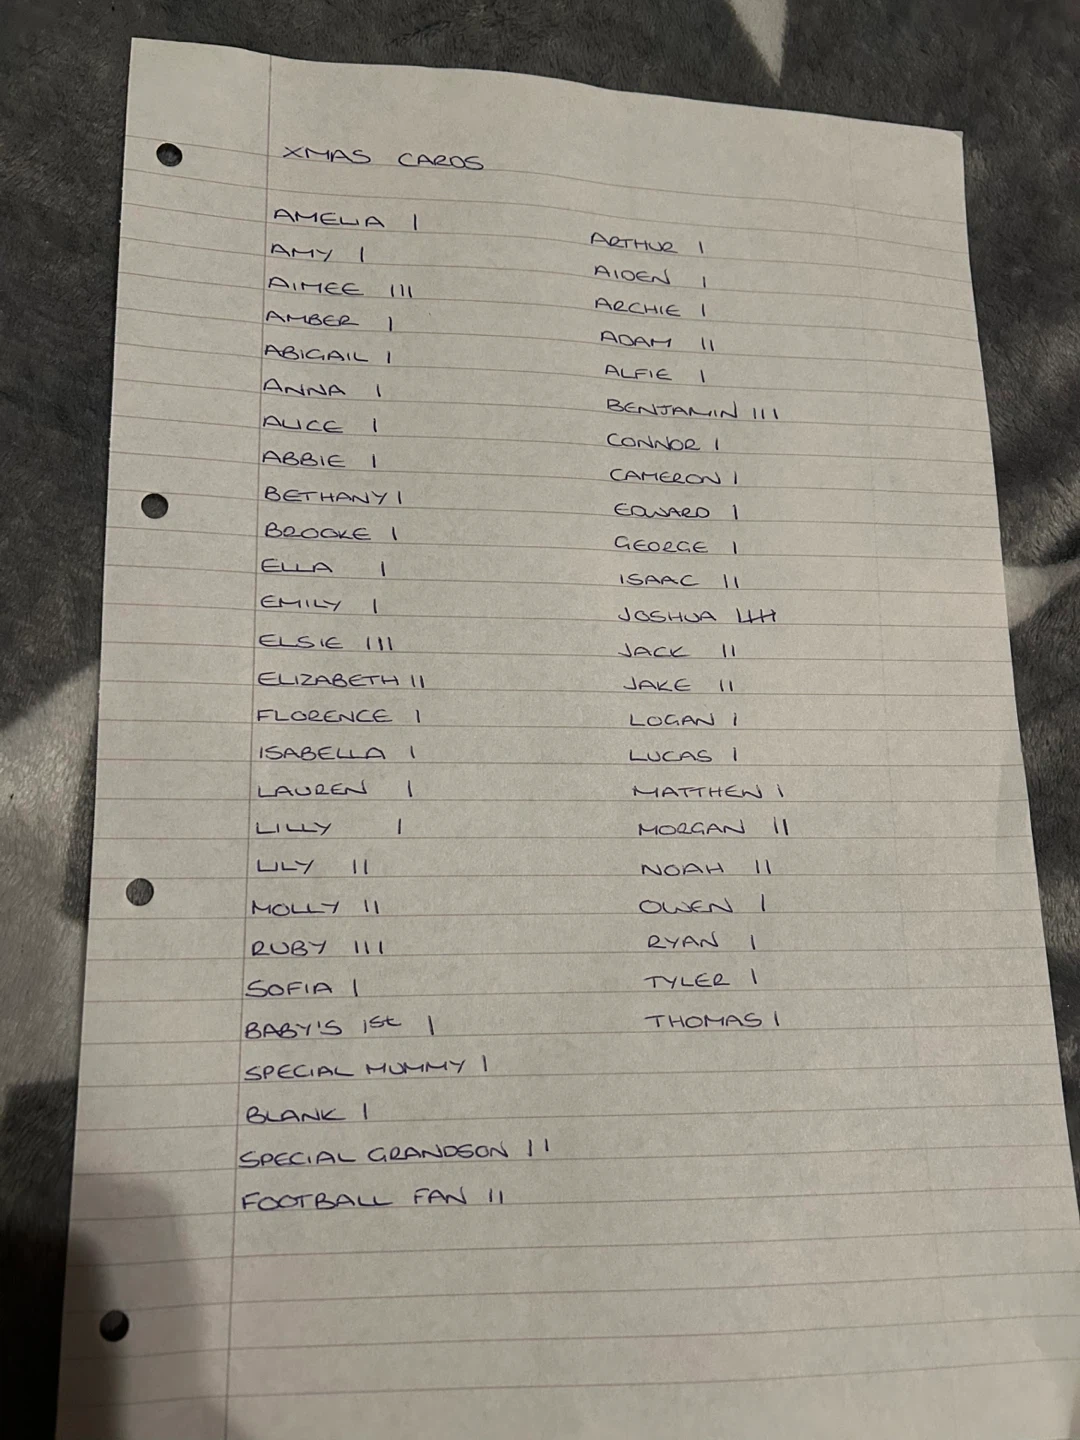 XMAS CARDS
AMELIA I
AMY I
AIMEE III
AMBER I
ABIGAIL I
ANNA I
ALICE I
ABBIE I
BETHANY I
BROOKE I
ELLA I
EMILY I
ELSIE III
ELIZABETH II
FLORENCE I
ISABELLA I
LAUREN I
LILLY I
LILY II
MOLLY II
RUBY III
SOFIA I
BABY'S 1St I
SPECIAL MUMMY I
BLANK I
SPECIAL GRANDSON II
FOOTBALL FAN II
ARTHUR I
AIDEN I
ARCHIE I
ADAM II
ALFIE I
BENJAMIN III
CONNOR I
CAMERON I
EDWARD I
GEORGE I
ISAAC II
JOSHUA IIII
JACK II
JAKE II
LOGAN I
LUCAS I
MATTHEW I
MORGAN II
NOAH II
OWEN I
RYAN I
TYLER I
THOMAS I